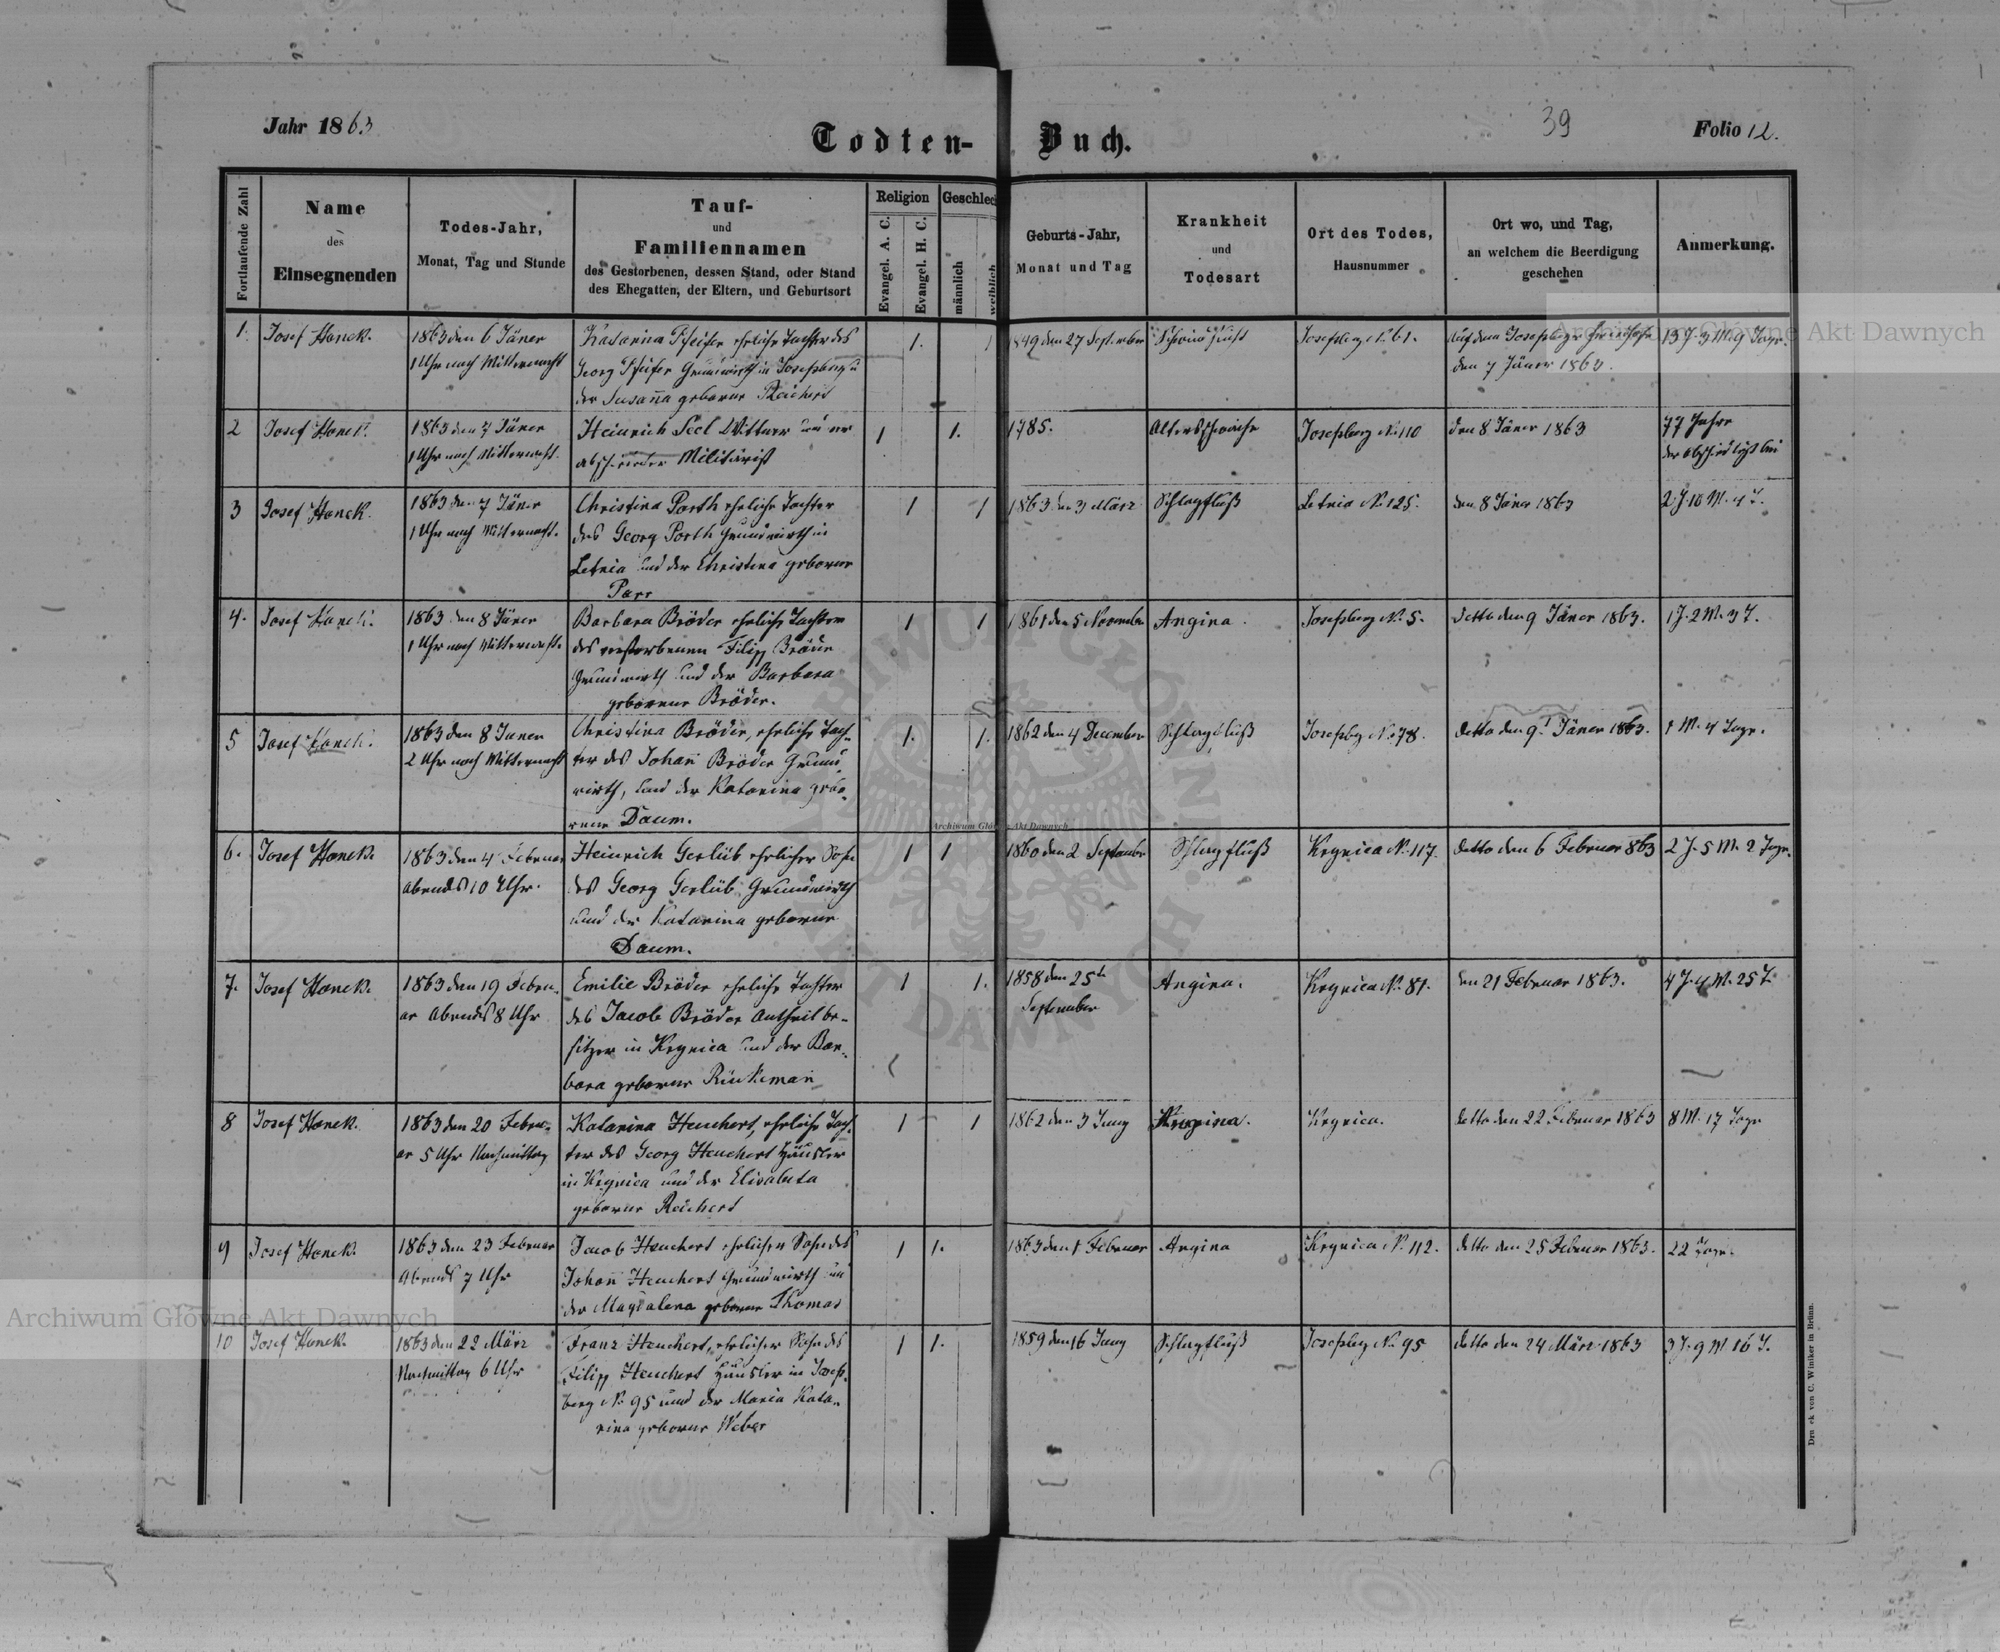 Jahr 1863
Todten-Buch.
39
Folio 12.
Fortlaufende Zahl
Name
des
Einsegnenden
Todes-Jahr,
Monat, Tag und Stunde
Tauf-
und
Familiennamen
des Gestorbenen, dessen Stand, oder Stand
des Ehegatten, der Eltern, und Geburtsort
Religion
Evangel. A. C.
Evangel. H. C.
Geschlec
männlich
weiblich
Geburts-Jahr,
Monat und Tag
Krankheit
und
Todesart
Ort des Todes,
Hausnummer
Ort wo, und Tag,
an welchem die Beerdigung
geschehen
Anmerkung.
1. Josef Hanek. 1863 den 6 Jäner Katarina Pfeifer eheliche Tochter des 1. 1 1849 den 27 September Josefsberg N. 61. Auf dem Josefsberger Friedhofe 13 J. 3 M. 9 Tage.
1 Uhr nach Mitternacht Georg Pfeifer Grundwirth in Josefsberg u den 7 Jäner 1863.
der Susana geborene Reichert
2 Josef Hanek. 1863 den 7 Jäner Heinrich Seel Wittwer 1 1. 1785. Altersschwäche Josefsberg No 110 den 8 Jäner 1863 77 Jahre
1 Uhr nach Mitternacht. Militärist der Abschied liegt bei
3 Josef Hanek. 1863 den 7 Jäner Christina Porth eheliche Tochter 1 1 1863 den 3 März Schlagfluß Letnia No. 125. den 8 Jäner 1863 2 J. 10 M. 4 T.
1 Uhr nach Mitternacht. des Georg Porth Grundwirth in
Letnia und der Christina geborene
Parr
4. Josef Hanek. 1863 den 8 Jäner Barbara Bröder eheliche Tochter 1 1 1861 den 5 November Angina. Josefsberg No. 5. detto den 9 Jäner 1863. 1 J. 2 M. 3 T.
1 Uhr nach Mitternacht. des verstorbenen Filipp Bröder
Grundwirth und der Barbara
geborene Bröder.
5 Josef Hanek. 1863 den 8 Jäner Christina Bröder, eheliche Toch- 1. 1. 1862 den 4 December Schlagfluß Josefsbg No. 78. detto den 9t Jäner 1863. 1 M. 4 Tage.
2 Uhr nach Mitternacht ter des Johañ Bröder Grund
wirth, und der Katarina gebo-
rene Daum.
6. Josef Hanek. 1863 den 4 Februar Heinrich Gerlüb ehelicher Sohn 1 1 1860 den 2 September Schlagfluß Krynica No. 117. detto den 6 Februar 863 2 J. 5 M. 2 Tage.
Abends 10 Uhr. des Georg Gerlüb Grundwirth
und der Katarina geborene
Daum.
7. Josef Hanek. 1863 den 19 Febru- Emilie Bröder eheliche Tochter 1 1. 1858 den 25te Angina. Krynica No. 81. den 21 Februar 1863. 4 J. 4 M. 25 T.
ar Abends 8 Uhr des Jacob Bröder Antheilbe- September
sitzer in Krynica und der Bar-
bara geborene Rinkemañ
8 Josef Hanek. 1863 den 20 Febru- Katarina Heuchert, eheliche Toch- 1 1 1862 den 3 Juny Angina. Krynica. detto den 22 Februar 1863 8 M. 17 Tage
ar 5 Uhr Nachmittag ter des Georg Heuchert Häusler
in Krynica und der Elisabeta
geborene Reichert
9 Josef Hanek. 1863 den 23 Februar Jacob Heuchert ehelicher Sohn des 1 1. 1863 den 1 Februar Angina Krynica No. 112. detto den 25 Februar 1863. 22 Tage.
Abends 7 Uhr Johañ Heuchert Grundwirth und
der Magdalena geborene Thomas
10 Josef Hanek. 1863 den 22 März Franz Heuchert, ehelicher Sohn des 1 1. 1859 den 16 Juny Schlagfluß Josefsbg No. 95 detto den 24 März 1863 3 J. 9 M 16 T.
Nachmittag 6 Uhr Filipp Heuchert Häusler in Josefs-
berg No. 95 und der Maria Kata-
rina geborene Weber
Druck von C. Winiker in Brünn.
Archiwum Główne Akt Dawnych
Archiwum Główne Akt Dawnych
Archiwum Główne Akt Dawnych
ARCHIWUM GŁÓWNE AKT DAWNYCH